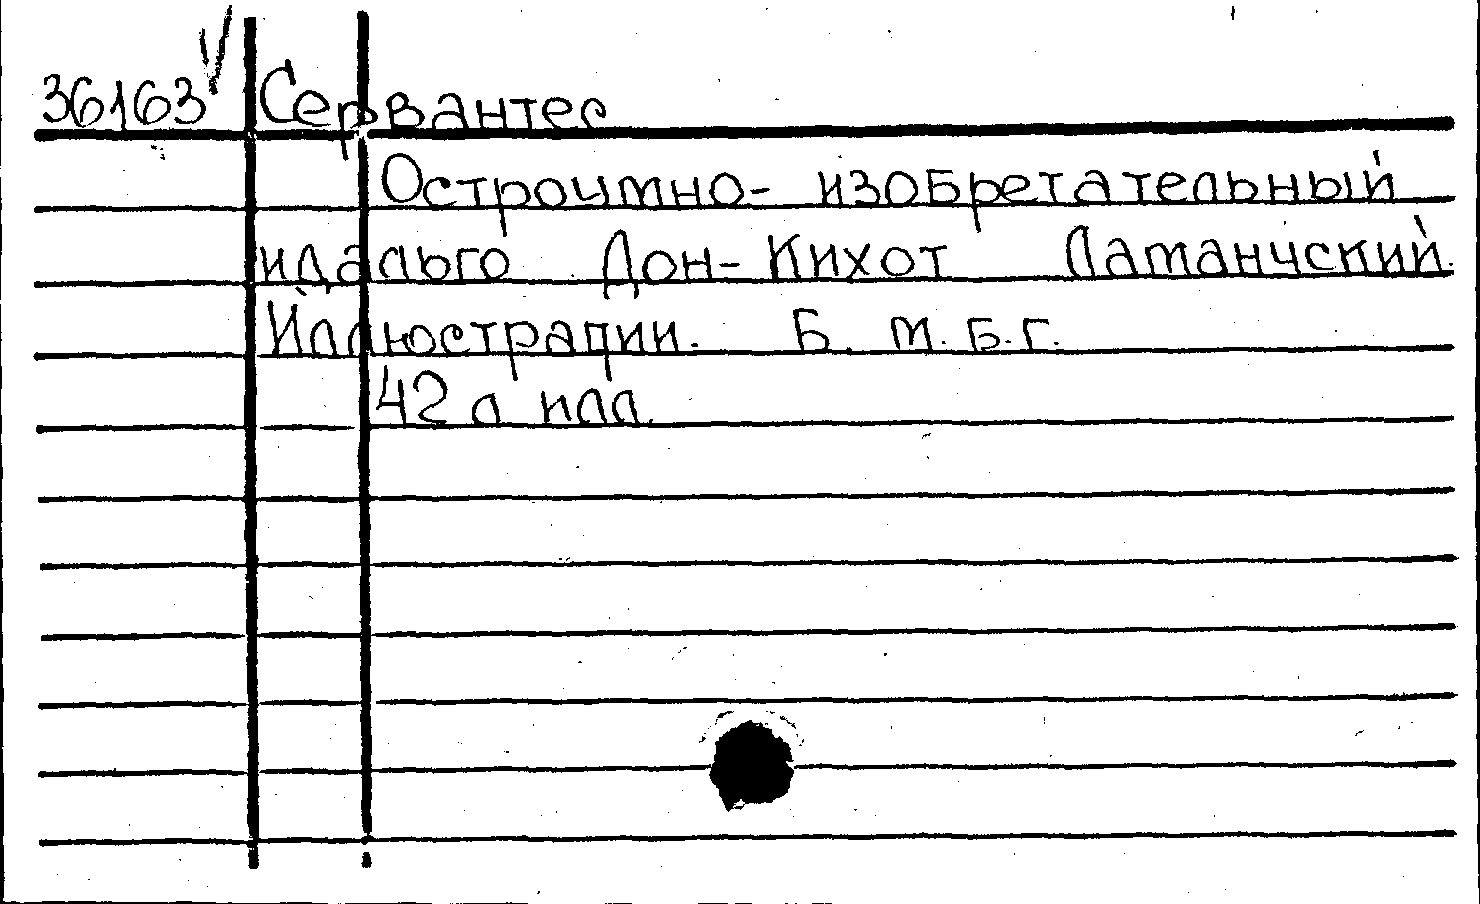 36163 Сервантес
Остроумно- изобретательный
идальго Дон-Кихот Ламанчский.
Иллюстрации. Б. м. б. г.
42 л илл.